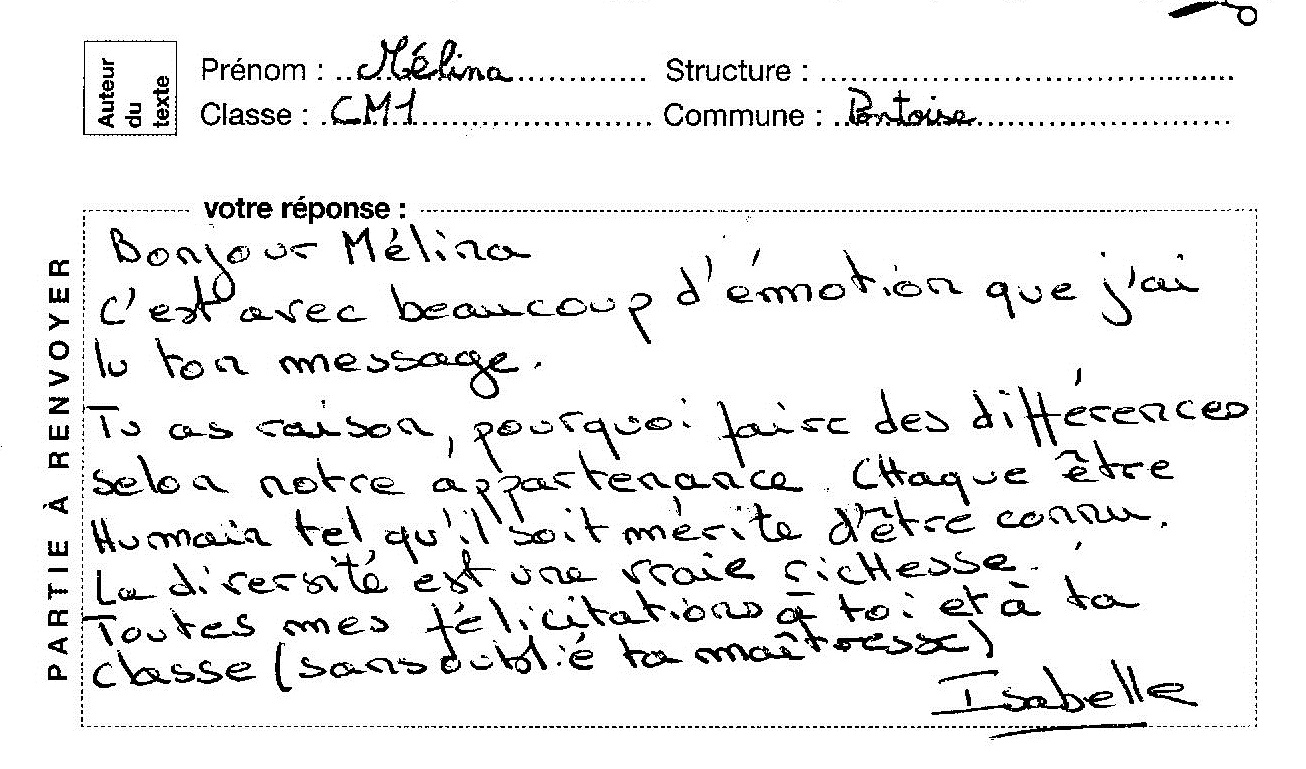 Auteur
du
texte
Prénom : Mélina
Structure :
Classe : CM1
Commune : Pontoise
PARTIE À RENVOYER
votre réponse :
Bonjour Mélina
C'est avec beaucoup d'émotion que j'ai
lu ton message.
Tu as raison, pourquoi faire des différences
selon notre appartenance. CHaque être
Humain tel qu'il soit mérite d'être connu.
La diversité est une vraie ricHesse.
Toutes mes félicitations à toi et à ta
classe (sans oublié ta maîtresse)
Isabelle